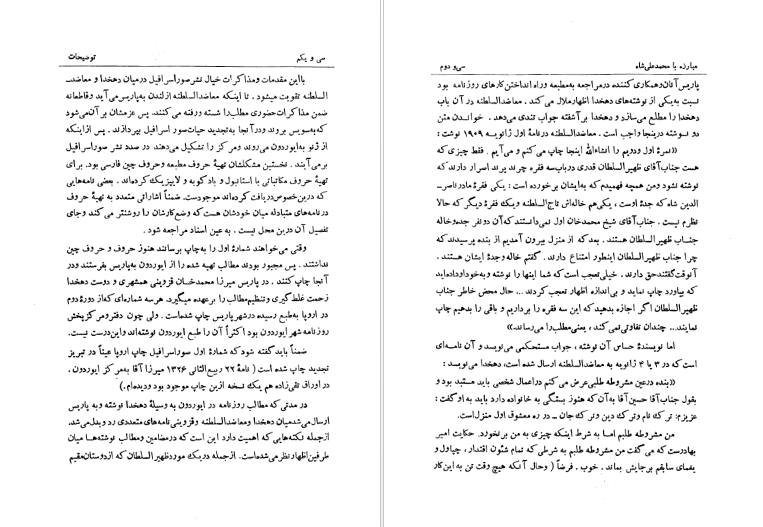 توضیحات
سی و یکم
بااین مقدمات ومذاکرات خیال نشر صوراسرافیل درمیان دهخدا و معاضد-
السلطنه تقویت میشود . تا اینکه معاضدالسلطنه ازلندن به‌پاریس می‌آید وقاطعانه
ضمن مذاکرات حضوری مطلب را شسته ورفته می کنند. پس عزمشان بر آن‌می‌شود
که‌به‌سویس بروند ودرآنجا به‌تجدید حیات‌صور اسرافیل بپردازند . پس ازاینکه
از ژنو به‌ایوردون می‌روند ومرکز را تشکیل می‌دهند در صدد نشر صوراسرافیل
برمی‌آیند . نخستین مشکلشان تهیهٔ حروف مطبعه وحروف چین فارسی بود. برای
تهیهٔ حروف مکاتباتی با استانبول و بادکوبه و لایپزیک کرده‌اند. بعضی نامه‌هایی
که درین‌خصوص‌دریافت کرده‌اند موجودست. ضمناً اشاراتی متعدد به تهیهٔ حروف
درنامه‌های متبادله میان خودشان هست‌که وضع‌کارشان را روشنتر می‌کند وجای
تفصیل آن درین محل نیست . به عین اسناد مراجعه شود .
وقتی می‌خواهند شمارهٔ اول را به‌چاپ برسانند هنوز حروف و حروف چین
نداشتند . پس مجبور بودند مطالب تهیه شده را از ایوردون به‌پاریس بفرستند ودر
آنجا چاپ کنند . در پاریس میرزا محمدخان قزوینی همشهری و دوست دهخدا
زحمت غلط گیری وتنظیم‌مطالب را برعهده میگیرد. هرسه شماره‌ای‌که ازدورهٔ دوم
در اروپا به‌طبع رسیده درشهرپاریس چاپ شده‌است . ولی چون دفترومرکز پخش
روزنامه شهر ایوردون بود اکثراً آن را طبع ایوردون نوشته‌اند واین‌درست نیست.
ضمناً بایدگفته شود که شمارهٔ اول صوراسرافیل چاپ اروپا عیناً در تبریز
تجدید چاپ شده است ( نامهٔ ۲۲ ربیع‌الثانی ۱۳۲۶ میرزا آقا به‌مرکز ایوردون .
در اوراق تقی‌زاده هم یک نسخه ازین چاپ موجود بود ودیده‌ام.)
در مدتی که مطالب روزنامه در ایوردون به وسیلهٔ دهخدا نوشته وبه پاریس
ارسال‌می‌شدمیان دهخدا ومعاضدالسلطنه وقزوینی نامه‌های متعددی رد وبدل‌می‌شد.
ازجمله نکته‌هایی که اهمیت دارد این است که درمضامین ومطالب نوشته‌ها میان
طرفین‌اظهارنظر می‌شده‌است. ازجمله دریک موردظهیرالسلطان که ازدوستان‌مقیم
مبارزه با محمدعلی‌شاه
سی‌و دوم
پاریس آنان‌وهمکاری کننده درمراجعه به‌مطبعه وراه انداختن‌کارهای روزنامه بود
نسبت به‌یکی از نوشته‌های دهخدا اظهارملال می کند . معاضدالسلطنه در آن باب
دهخدا را مطلع می‌سازد و دهخدا برآشفته جواب تندی می‌دهد . خواندن متن
دو نوشته درینجا واجب است . معاضدالسلطنه درنامهٔ اول ژانویهٔ ۱۹۰۹ نوشت :
«نمرهٔ اول ودویم را انشاءالله اینجا چاپ می‌کنم و می‌آیم . فقط چیزی که
هست جناب‌آقای ظهیرالسلطان قدری درباب‌سه فقره چرند پرند اسرار دارند که
نوشته نشود ومن همچه فهمیدم که به‌ایشان برخورده است : یکی فقرهٔ مادرناصر-
الدین شاه که جدهٔ اوست ، یکی‌هم خاله‌اش تاج‌السلطنه ویک فقرهٔ دیگر که حالا
نظرم نیست . جناب‌آقای شیخ محمدخان اول نمی‌دانستندکه‌آن دونفر جده‌وخاله
جناب ظهیرالسلطان هستند . بعد که از منزل بیرون آمدیم از بنده پرسیدند که
چرا جناب ظهیرالسلطان اینطور امتناع دارند . گفتم خاله وجدهٔ ایشان هستند .
آنوقت‌گفتندحق دارند . خیلی‌تعجب است‌که شما اینها را نوشته وبه‌خودداده‌اید
که بیاورد چاپ نماید و بی‌اندازه اظهار تعجب‌کردند ... حال محض خاطر جناب
ظهیرالسلطان اگر اجازه بدهید که این سه فقره را برداریم و باقی را بدهیم چاپ
نمایند... چندان تفاوتی نمی کند ، یعنی‌مطلب‌را می‌رساند.»
اما نویسندهٔ حساس آن نوشته ، جواب مستحکمی می‌نویسد و آن نامه‌ای
است که در ۳ یا ۴ ژانویه به معاضدالسلطنه ارسال شده است ، دهخدا می‌نویسد :
«بنده درعین مشروطه طلبی‌عرض می کنم دراعمال شخصی باید مستبد بود و
بقول جناب‌آقا حسین‌آقا به‌آن که هنوز بستگی به خانواده دارد باید به اوگفت :
عزیزم: ترک نام وترک دین وترک جان - در ره معشوق اول منزل‌است.
من مشروطه طلبم اما به شرط اینکه چیزی به من برنخورد. حکایت امیر
بهادرست که می گفت من مشروطه طلبم به شرطی که تمام شئون اقتدار ، چپاول و
یغمای سابقم برجایش بماند . خوب . فرضاً ( وحال آنکه هیچ وقت تن به این‌کار